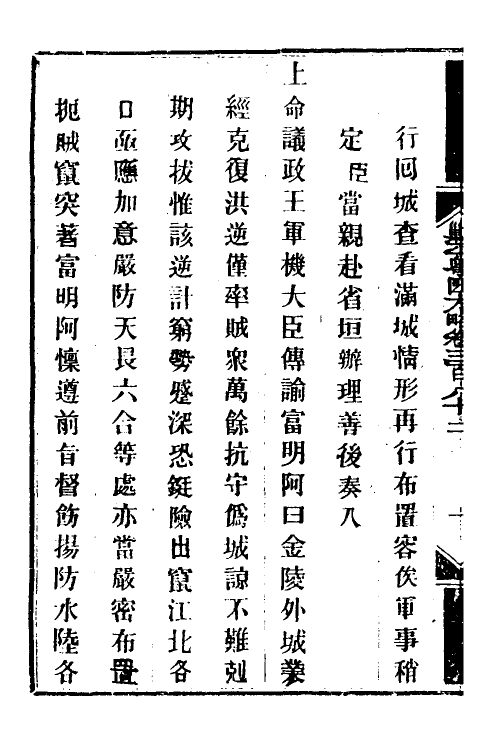 行囘城查看滿城情形再行布置容俟軍事稍
定臣當親赴省垣辦理善後奏入
上命議政王軍機大臣傳諭富明阿曰金陵外城業
經克復洪逆僅率賊衆萬餘抗守僞城諒不難剋
期攻拔惟該逆計窮勢蹙深恐鋌險出竄江北各
口亟應加意嚴防天長六合等處亦當嚴密布置
扼賊竄突著富明阿懍遵前旨督飭揚防水陸各
卷三百八十二